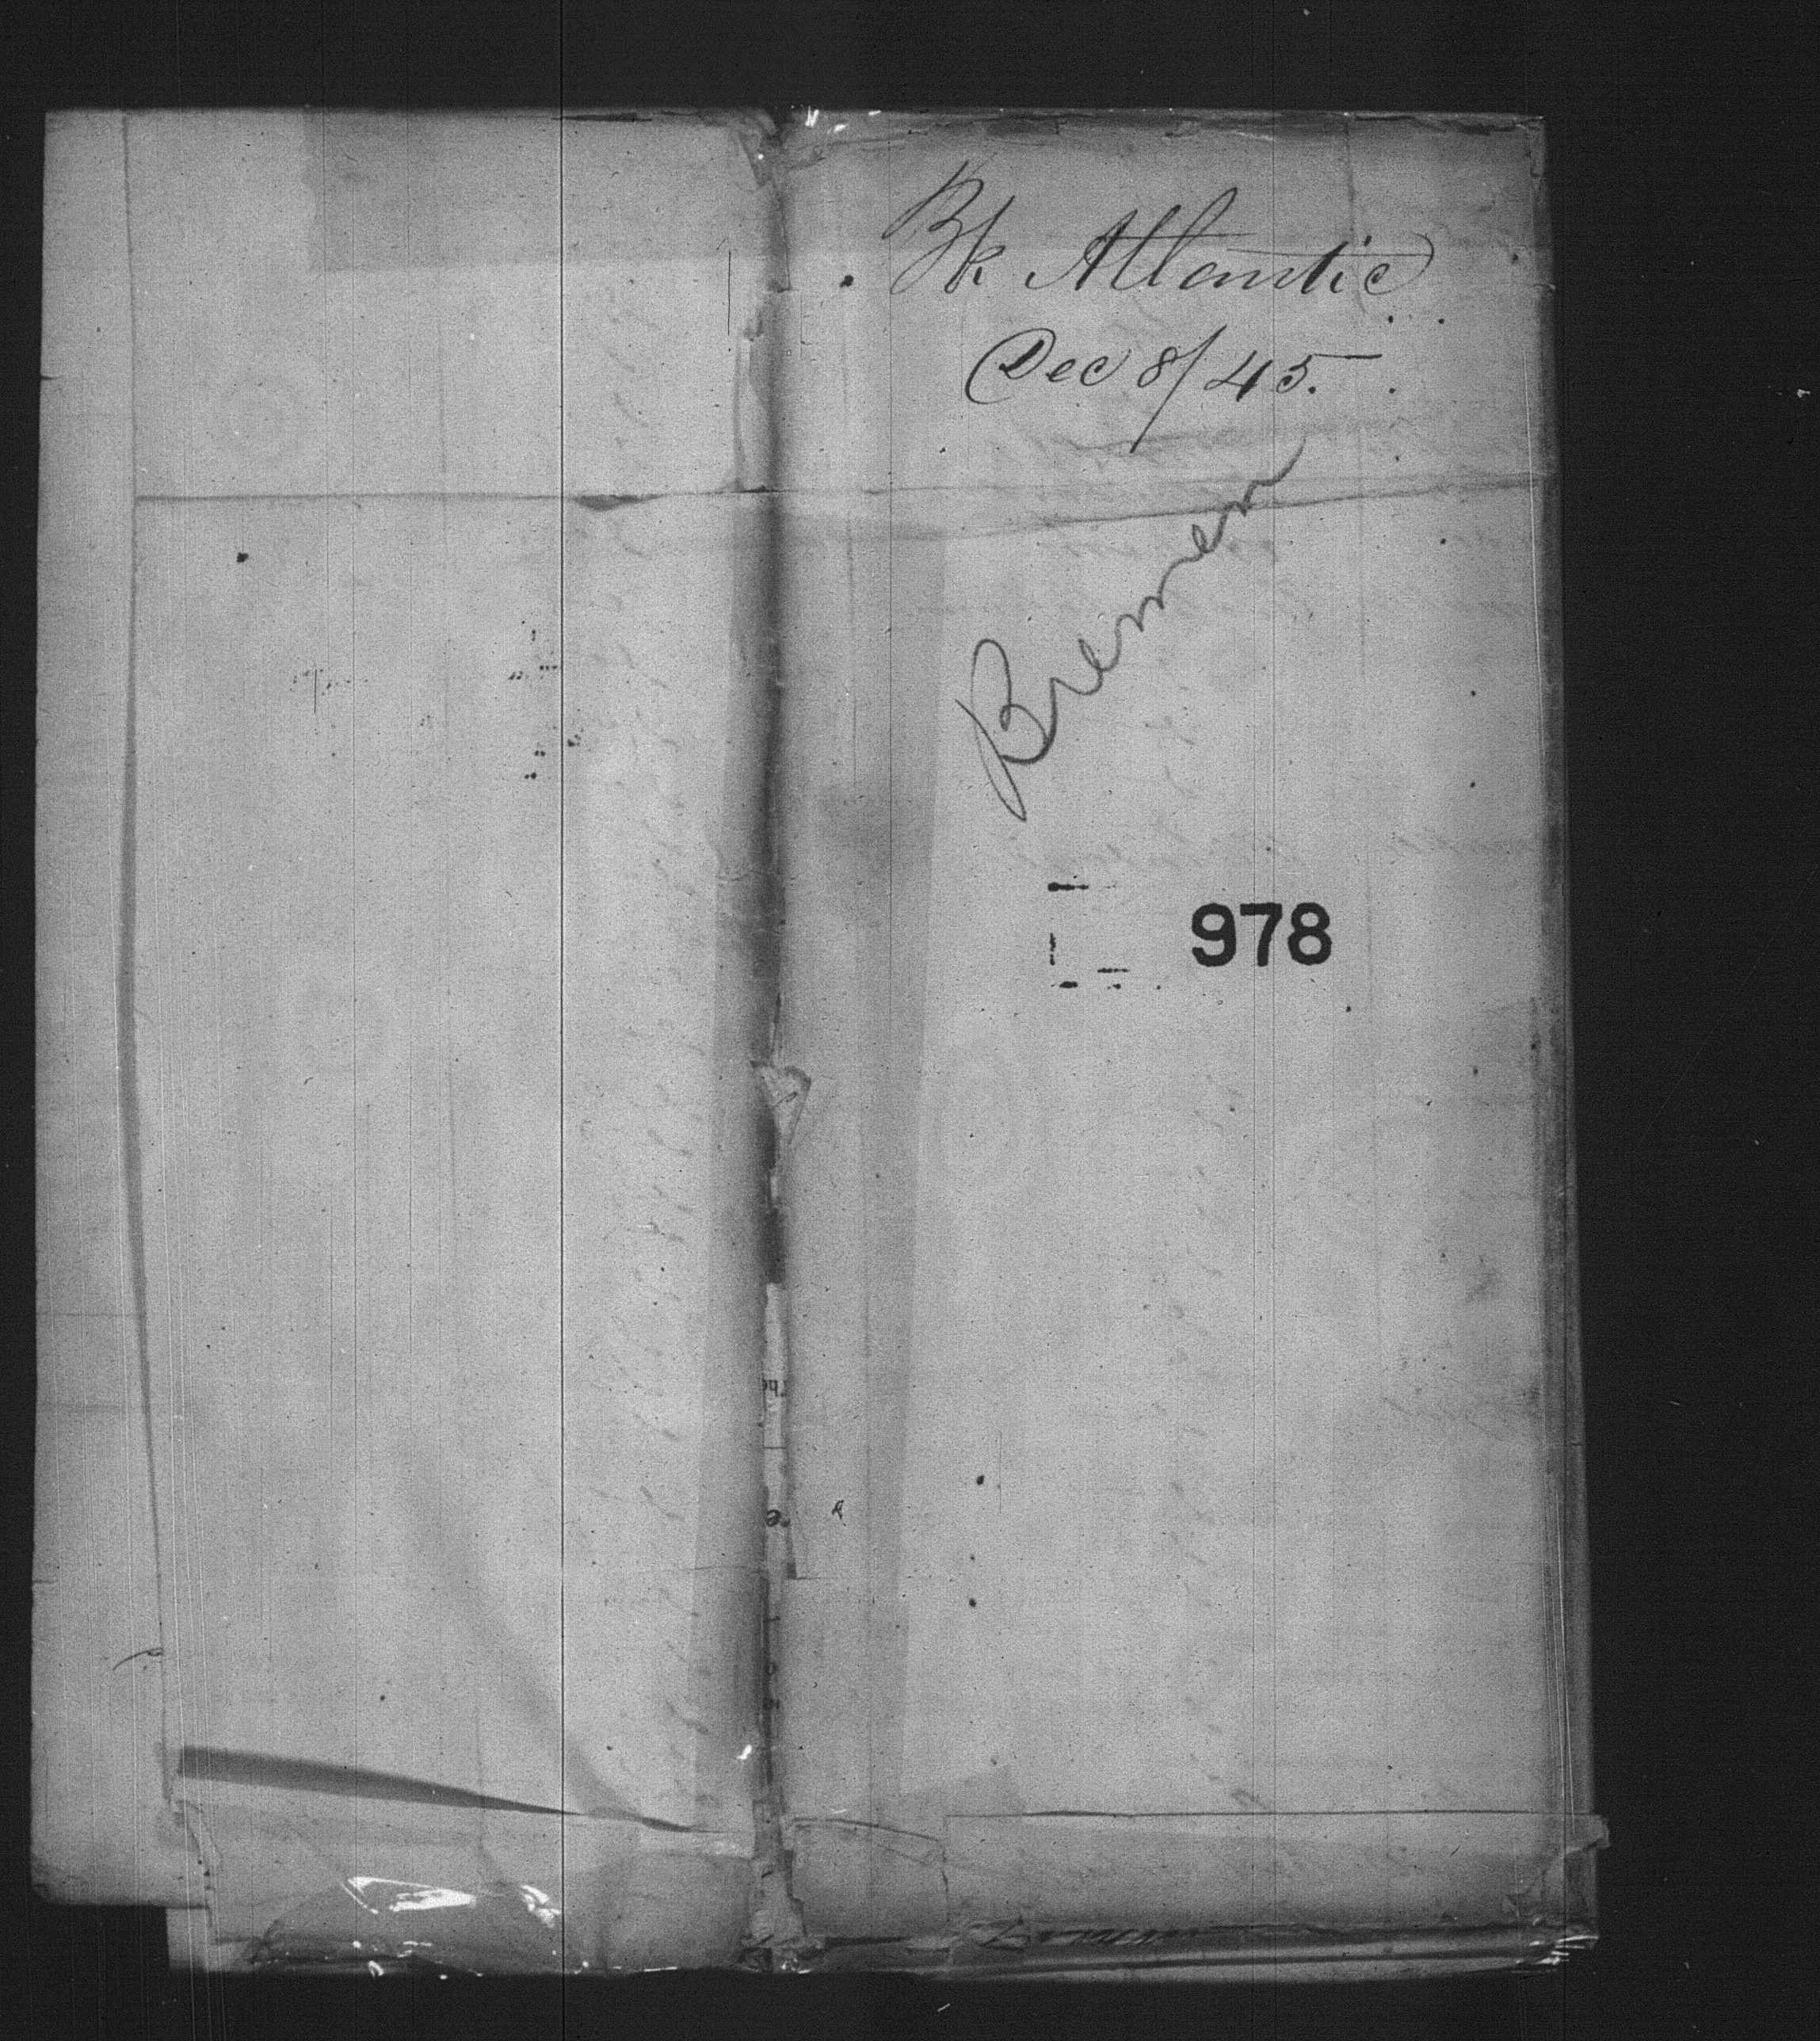 Bk Atlantic
Dec 8/45.
Bremen
978
The